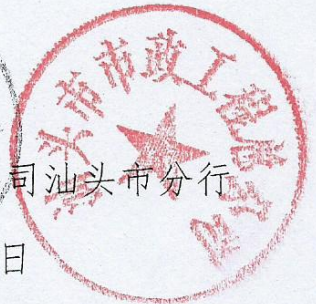 汕头市市政工程总公司
司汕头市分行
日